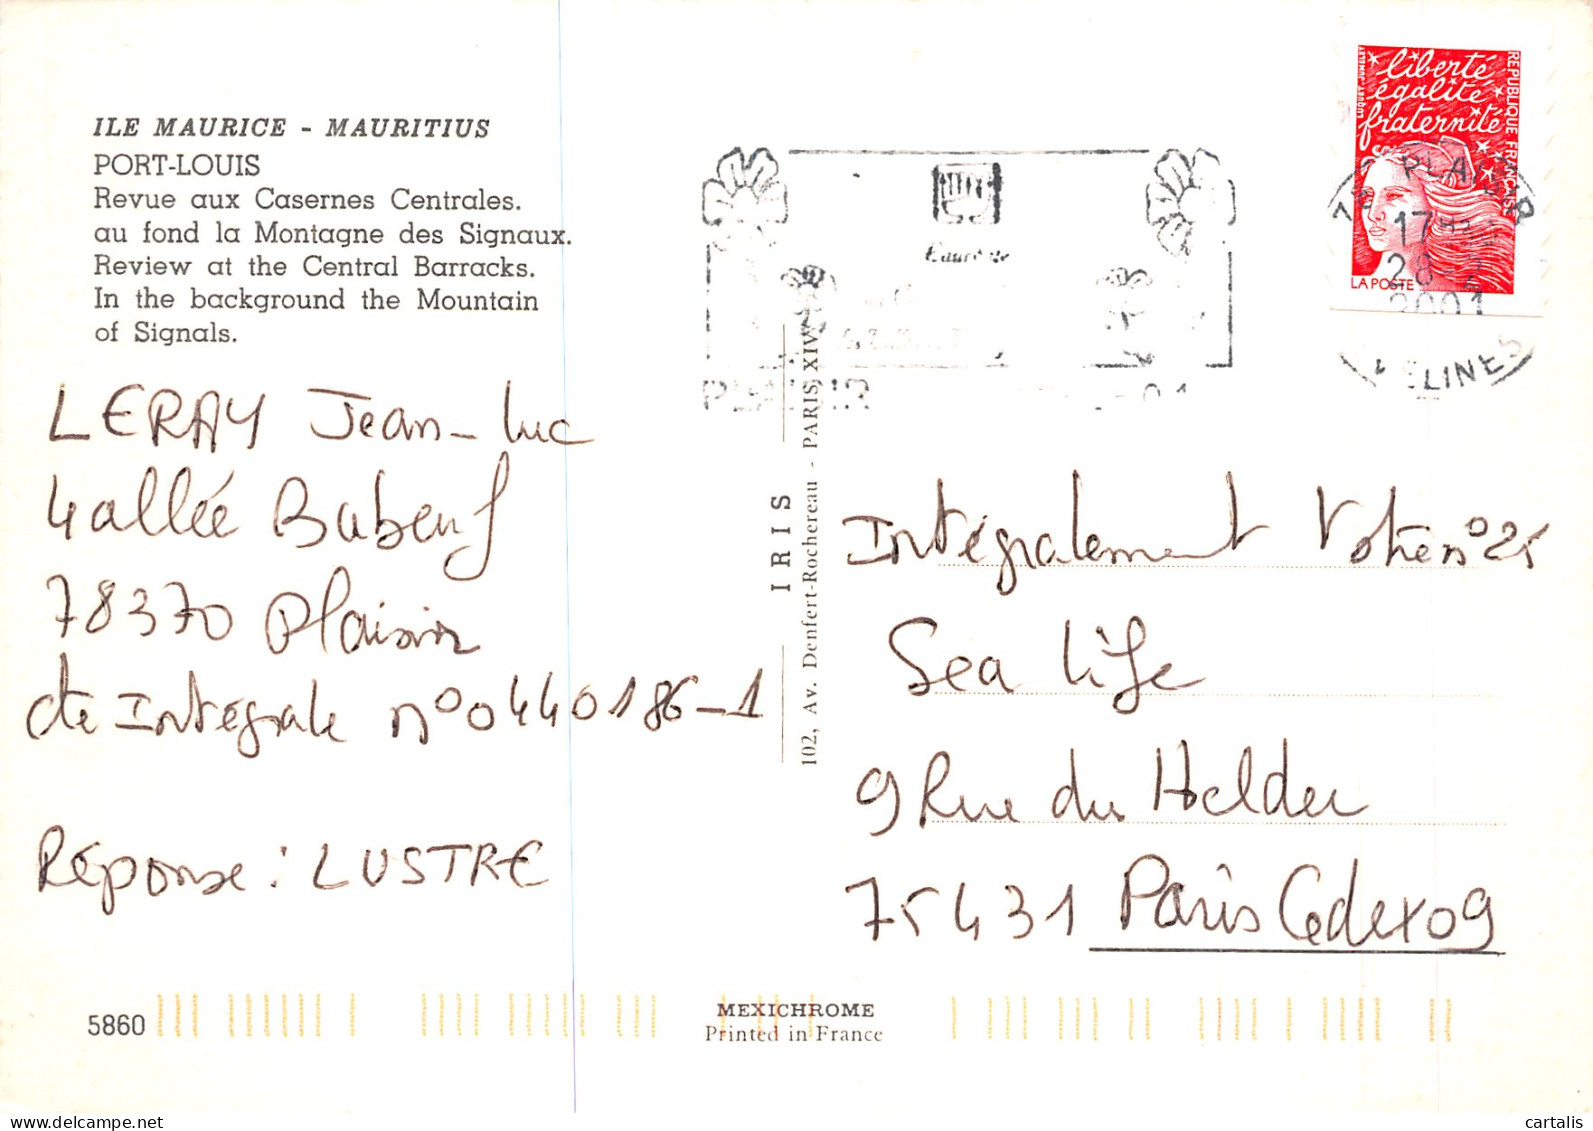 ILE MAURICE - MAURITIUS
PORT-LOUIS
Revue aux Casernes Centrales.
au fond la Montagne des Signaux.
Review at the Central Barracks.
In the background the Mountain
of Signals.
LERAY Jean-Luc
4 allée Babeuf
78370 Plaisir
Intégrale n° 0440186-1
Réponse : LUSTRE
5860
IRIS
102, Av. Denfert-Rochereau - PARIS XIV
MEXICHROME
Printed in France
liberté
égalité
fraternité
REPUBLIQUE FRANÇAISE
LA POSTE
PLAISIR
17
28-2
2001
Intégralement Vôtre n° 25
Sea Life
9 Rue du Helder
75431 Paris Cedex 09
delcampe.net
cartalis